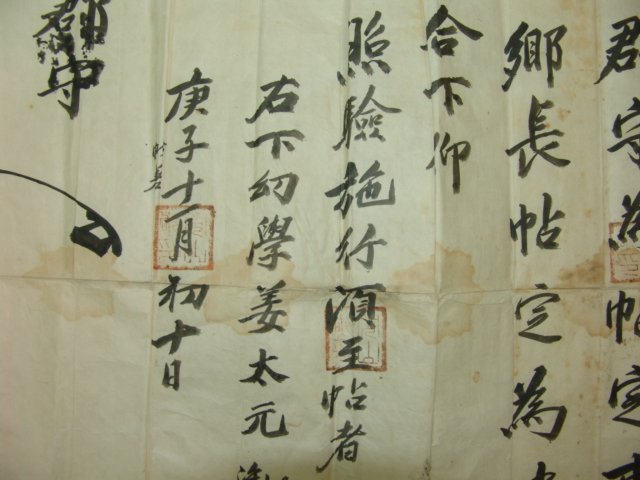 君守為帖定
鄉長帖定為
合下仰
照驗施行須至帖者
右下幼學姜太元
庚子十一月初十日
郡守